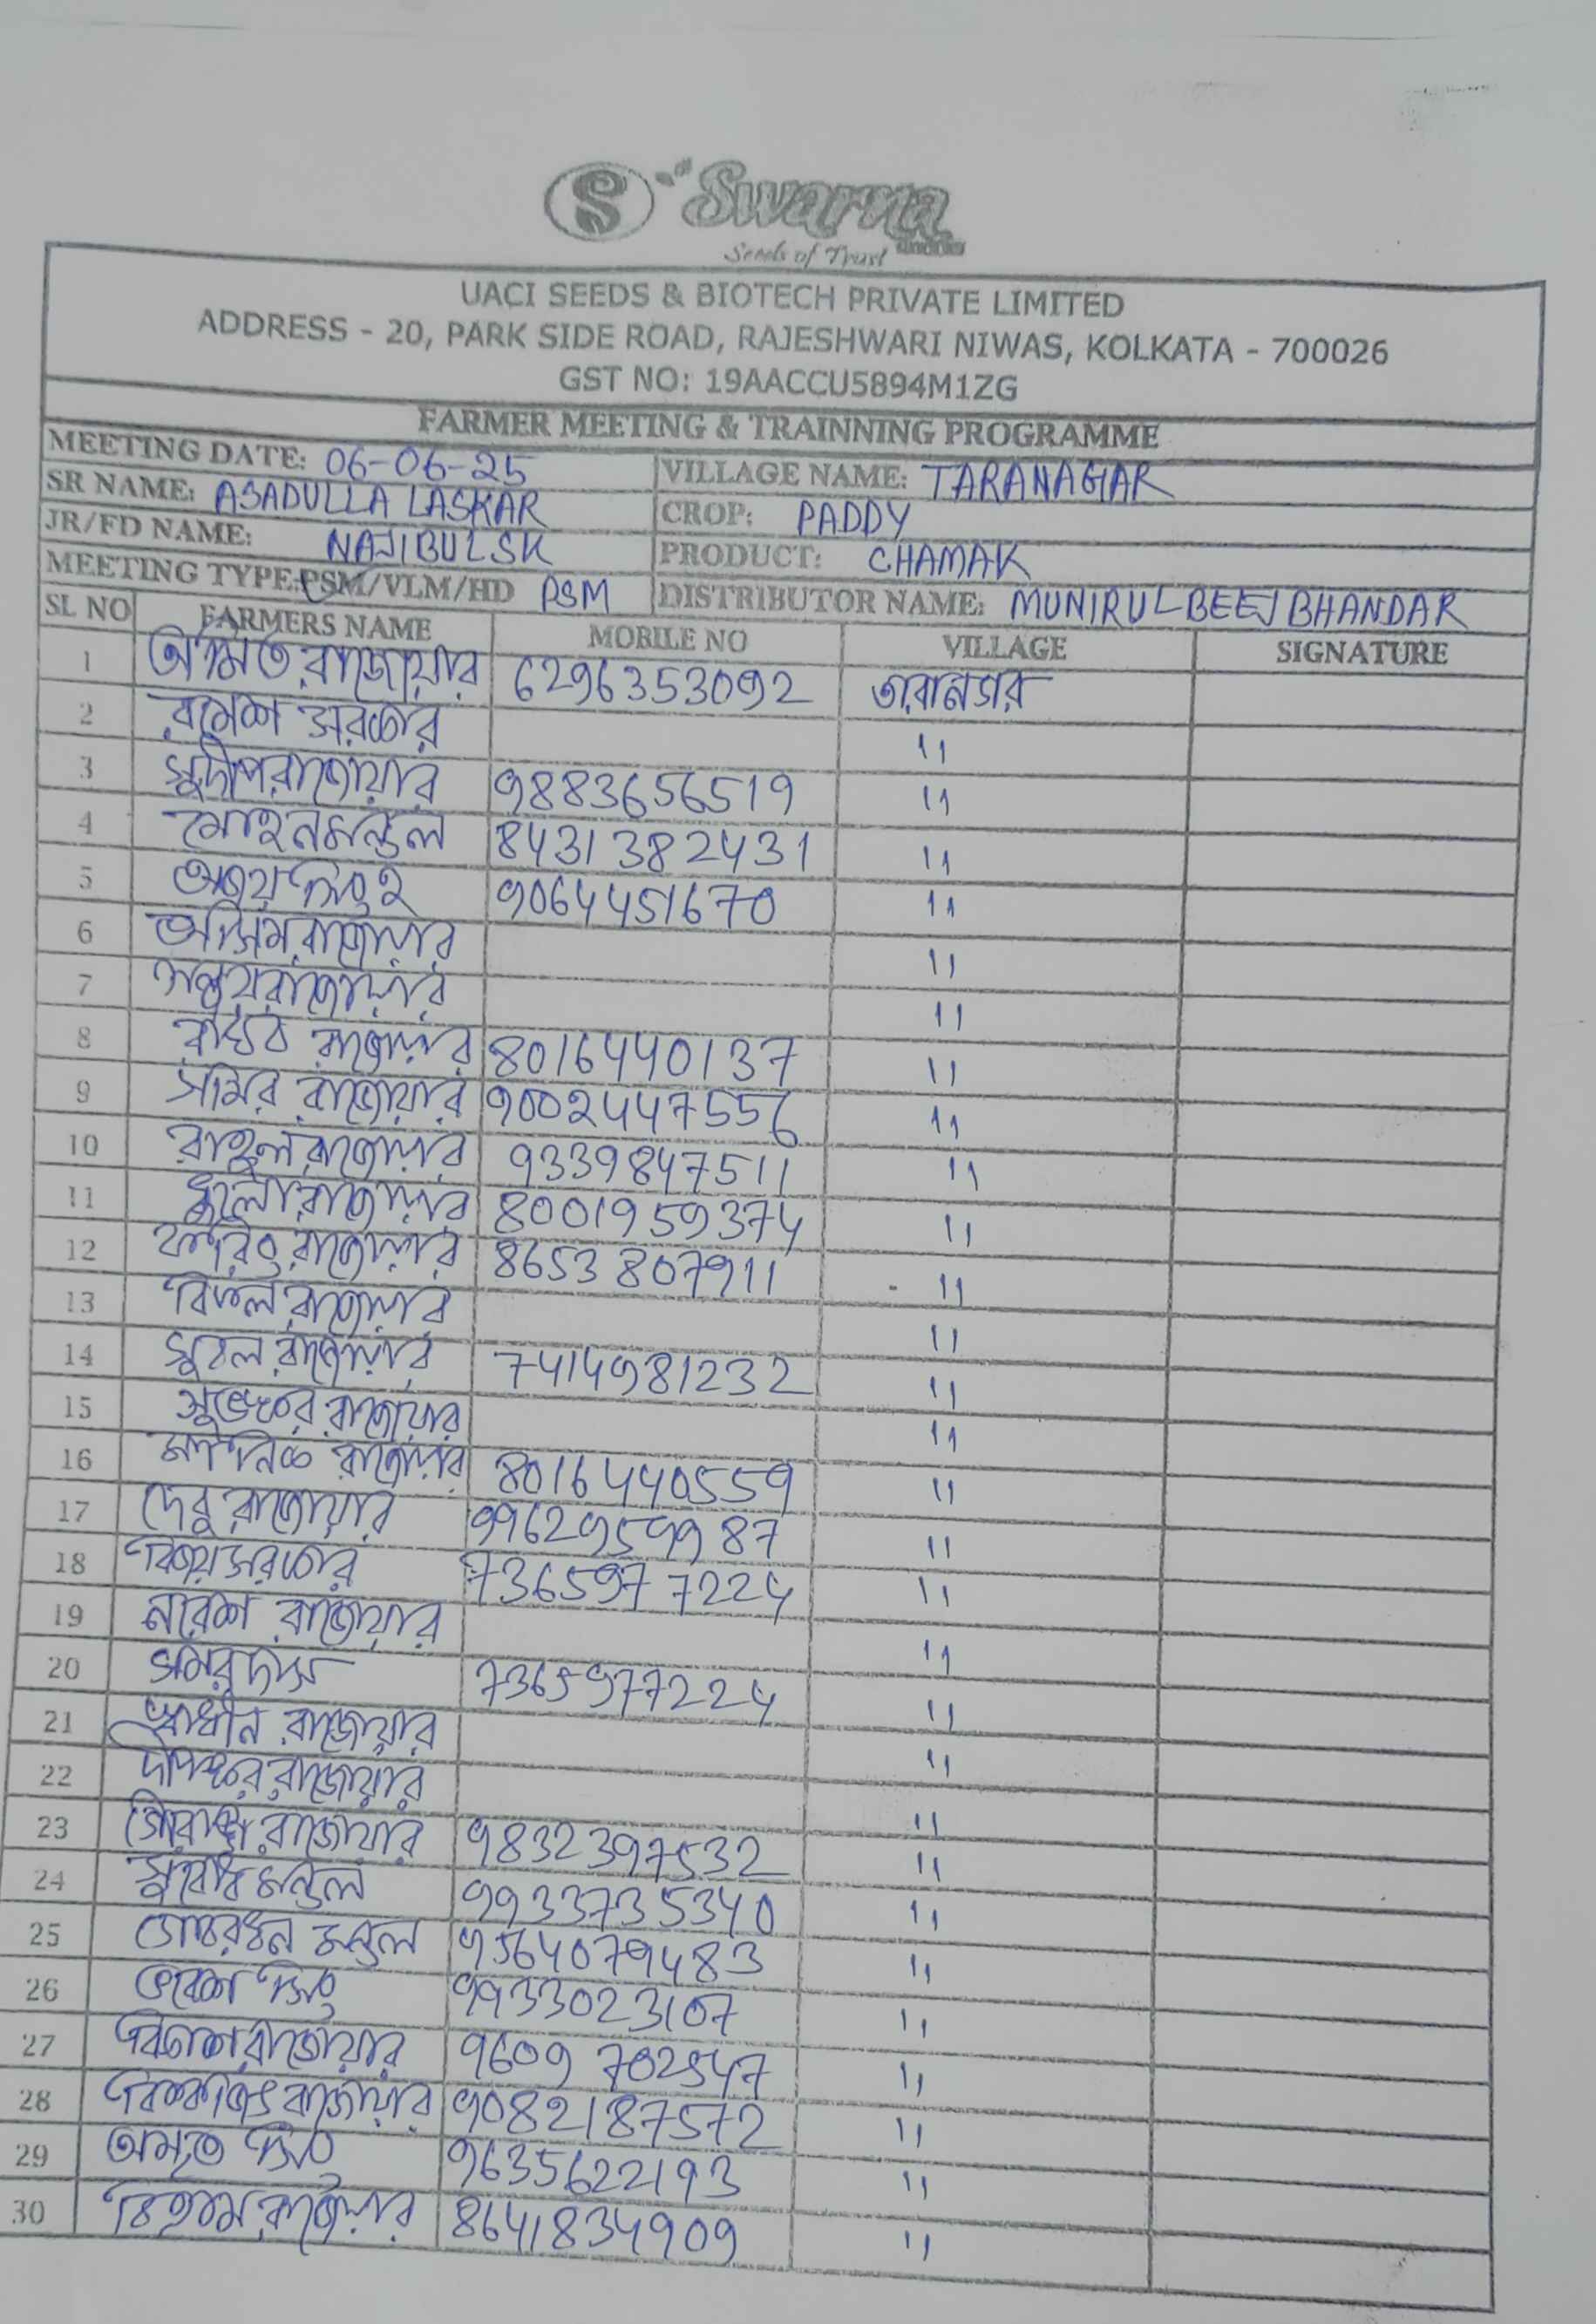 Swarna
Seeds of Trust
UACI SEEDS & BIOTECH PRIVATE LIMITED
ADDRESS - 20, PARK SIDE ROAD, RAJESHWARI NIWAS, KOLKATA - 700026
GST NO: 19AACCU5894M1ZG
FARMER MEETING & TRAINNING PROGRAMME
MEETING DATE: 06-06-25 VILLAGE NAME: TARANAGAR
SR NAME: ASADULLA LASKAR CROP: PADDY
JR/FD NAME: NAJIBUL SK PRODUCT: CHAMAK
MEETING TYPE: PSM/VLM/HD PSM DISTRIBUTOR NAME: MUNIRUL BEEJ BHANDAR
SL NO FARMERS NAME MOBILE NO VILLAGE SIGNATURE
1 অমিত রাজোয়ার 6296353092 তারানগর
2 রমেশ সরকার 11
3 সুদীপ রাজোয়ার 9883656519 11
4 মোহন মন্ডল 8431382431 11
5 অজয় সিংহ 9064451670 11
6 অসিম রাজোয়ার 11
7 সঞ্জয় রাজোয়ার 11
8 রাঘব রাজোয়ার 8016440137 11
9 সমির রাজোয়ার 9002447556 11
10 রাহুল রাজোয়ার 9339847511 11
11 রাজোয়ার 8001959374 11
12 রাজোয়ার 8653807911 11
13 রাজোয়ার 11
14 সুবল রাজোয়ার 7414981232 11
15 রাজোয়ার 11
16 মানিক রাজোয়ার 8016440559 11
17 দেবু রাজোয়ার 9962959987 11
18 বিজয় সরকার 7365977224 11
19 নরেশ রাজোয়ার 11
20 সমর দাস 7365977224 11
21 স্বাধীন রাজোয়ার 11
22 দীপঙ্কর রাজোয়ার 11
23 গৌরাঙ্গ রাজোয়ার 9832397532 11
24 সুবোধ মন্ডল 9933735340 11
25 গোবরধন মন্ডল 9564079483 11
26 ভবেশ সিং 9933023107 11
27 বিকাশ রাজোয়ার 9609702547 11
28 রাজোয়ার 9082187572 11
29 অমৃত সিং 9635622193 11
30 রাজোয়ার 8641834909 11